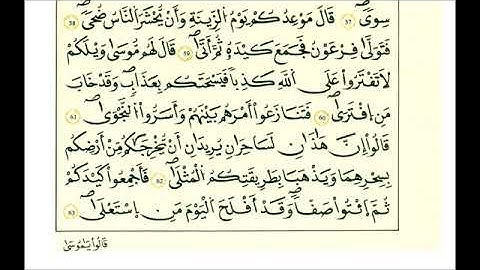 سِوىًۖ 57 قَالَ مَوْعِدُكُمْ يَوْمُ الزِّينَةِ وَأَنْ يُّحْشَرَ النَّاسُ ضُحىًۖ 58
فَتَوَلَّىٰ فِرْعَوْنُ فَجَمَعَ كَيْدَهُۥ ثُمَّ أَتَىٰۖ 59 قَالَ لَهُم مُّوسَىٰ وَيْلَكُمْ
لَا تَفْتَرُوا۟ عَلَى اَللَّهِ كَذِباً فَيَسْحَتَكُم بِعَذَابٍۖ وَقَدْ خَابَ
مَنِ اِفْتَرَىٰۖ 60 فَتَنَازَعُوا۟ أَمْرَهُم بَيْنَهُمْ وَأَسَرُّوا۟ اُلنَّجْوَىٰۖ 61
قَالُوا۟ إِنَّ هَٰذَانِ لَسَاحِرَانِ يُرِيدَانِ أَنْ يُّخْرِجَاكُم مِّنْ أَرْضِكُم
بِسِحْرِهِمَا وَيَذْهَبَا بِطَرِيقَتِكُمُ الْمُثْلَىٰۖ 62 فَأَجْمِعُوا۟ كَيْدَكُمْ
ثُمَّ اَئْتُوا۟ صَفّاًۖ وَقَدْ أَفْلَحَ اَلْيَوْمَ مَنِ اِسْتَعْلَىٰۖ 63
قَالُوا۟ يَٰمُوسَىٰ